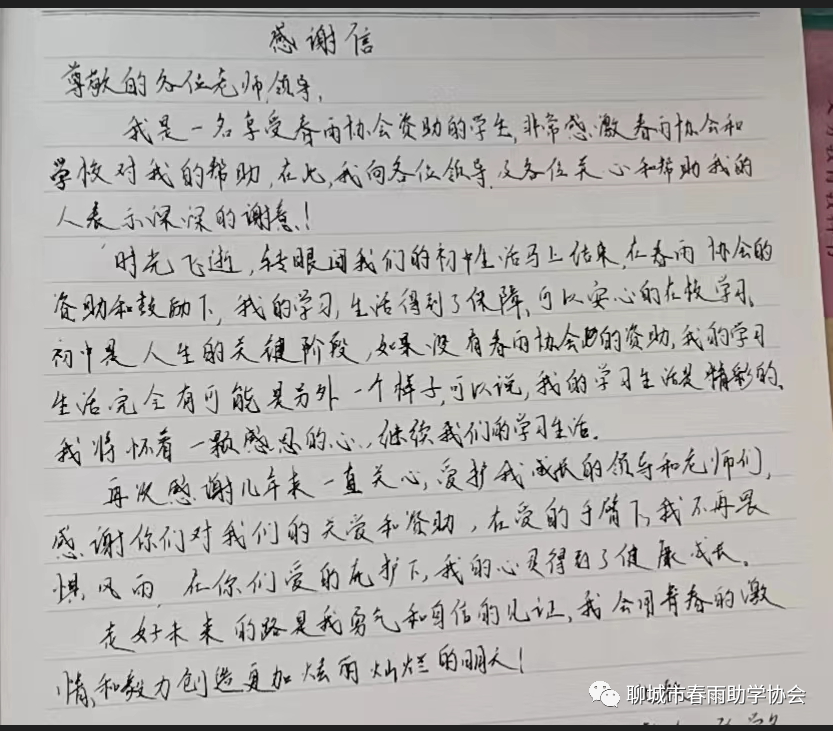 感谢信
尊敬的各位老师,领导,
我是一名享受春雨协会资助的学生,非常感激春雨协会和
学校对我的帮助,在此,我向各位领导,及各位关心和帮助我的
人表示深深的谢意!
时光飞逝,转眼间我们的初中生活马上结束,在春雨协会的
资助和鼓励下,我的学习,生活得到了保障,可以安心的在校学习。
初中是人生的关键阶段,如果没有春雨协会的资助,我的学习
生活完全有可能是另外一个样子,可以说,我的学习生活是精彩的。
我将怀着一颗感恩的心,继续我们的学习生活。
再次感谢几年来一直关心,爱护我成长的领导和老师们,
感谢你们对我们的关爱和资助,在爱的手臂下,我不再畏
惧,风雨,在你们爱的庇护下,我的心灵得到了健康成长。
走好未来的路是我勇气和自信的见证,我会用青春的激
情,和毅力创造更加炫丽灿烂的明天!
聊城市春雨助学协会